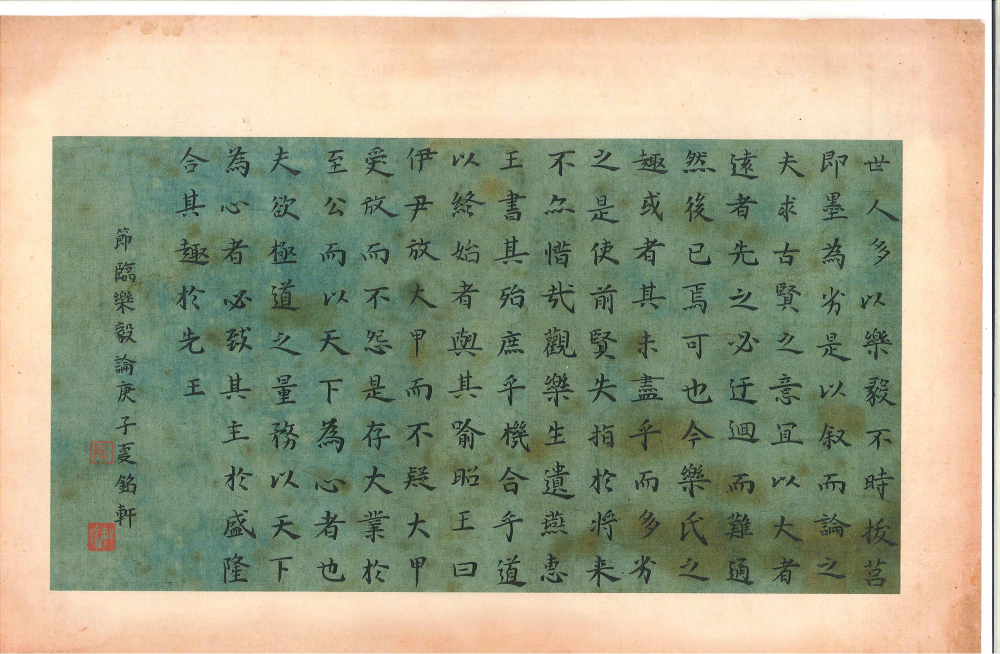 世人多以樂毅不時拔莒
即墨為劣是以叙而論之
夫求古賢之意宜以大者
遠者先之必迂迴而難通
然後已焉可也今樂氏之
趣或者其未盡乎而多劣
之是使前賢失指於将来
不亦惜哉觀樂生遺燕惠
王書其殆庶乎機合乎道
以終始者與其喻昭王曰
伊尹放大甲而不疑大甲
受放而不怨是存大業於
至公而以天下為心者也
夫欲極道之量務以天下
為心者必致其主於盛隆
合其趣於先王
節臨樂毅論庚子夏銘軒